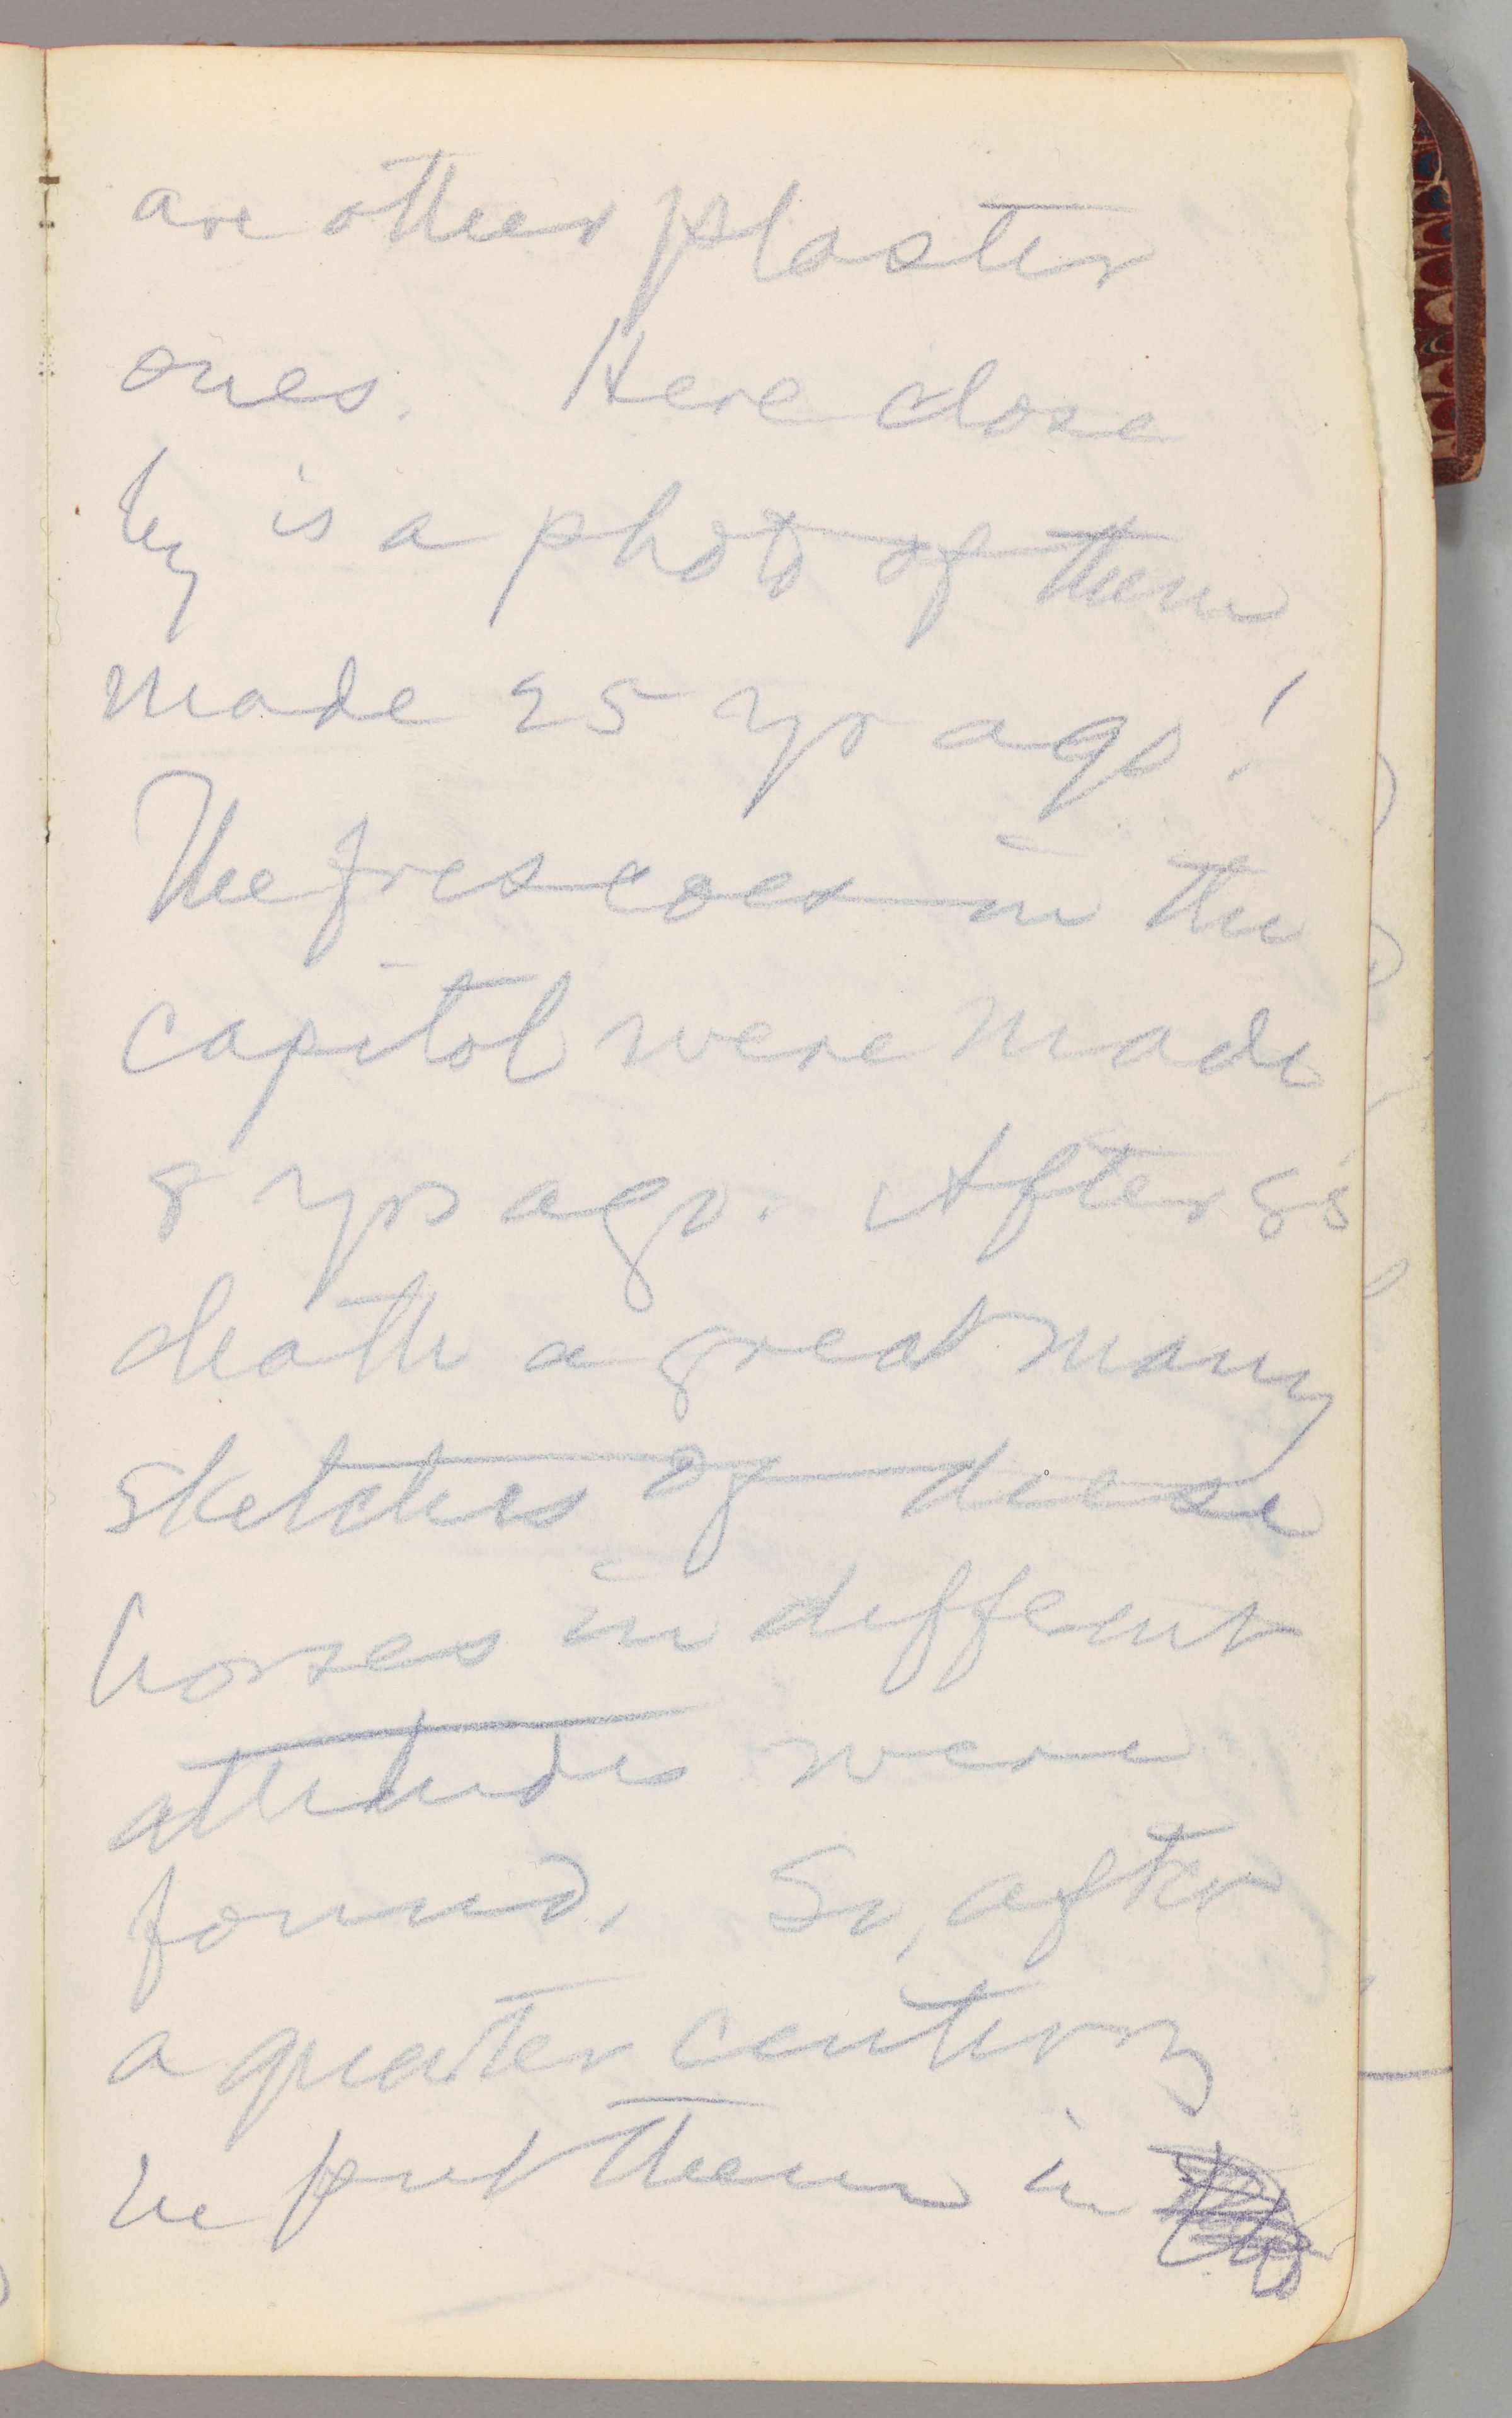 are other plaster
ones. Here close
by is a photo of them
made 25 yr ago!
The frescoes in the
capitol were made
8 yrs ago. After g's
death a great many
sketches of these
horses in different
attitudes were
found. So, after
a quarter century
he put them in